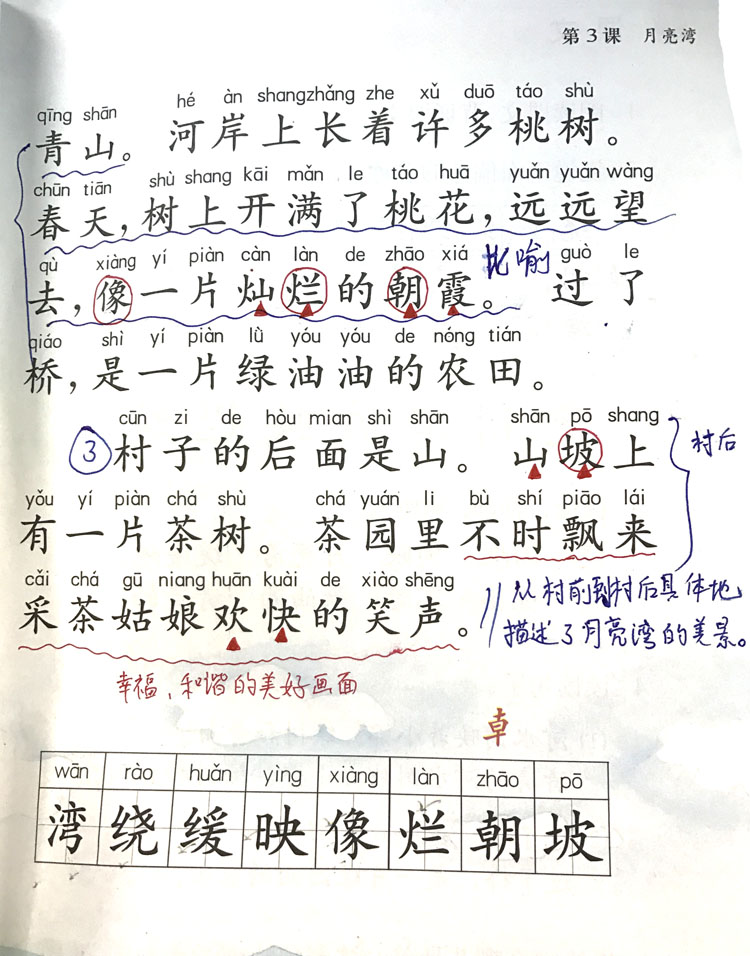 第3课 月亮湾
qīng shān hé àn shangzhǎng zhe xǔ duō táo shù
青山。河岸上长着许多桃树。
chūn tiān shù shang kāi mǎn le táo huā yuǎn yuǎn wàng
春天,树上开满了桃花,远远望
qù xiàng yí piàn càn làn de zhāo xiá guò le
去,像一片灿烂的朝霞。比喻 过了
qiáo shì yí piàn lǜ yóu yóu de nóng tián
桥,是一片绿油油的农田。
cūn zi de hòu mian shì shān shān pō shang
③村子的后面是山。山坡上 村后
yǒu yí piàn chá shù chá yuán li bù shí piāo lái
有一片茶树。茶园里不时飘来
cǎi chá gū niang huān kuài de xiào shēng
采茶姑娘欢快的笑声。
从村前到村后具体地
描述了月亮湾的美景。
幸福、和谐的美好画面
卓
wān rào huǎn yìng xiàng làn zhāo pō
湾绕缓映像烂朝坡